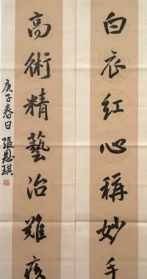 白衣紅心稱妙手
高術精藝治難疾
庚子春日